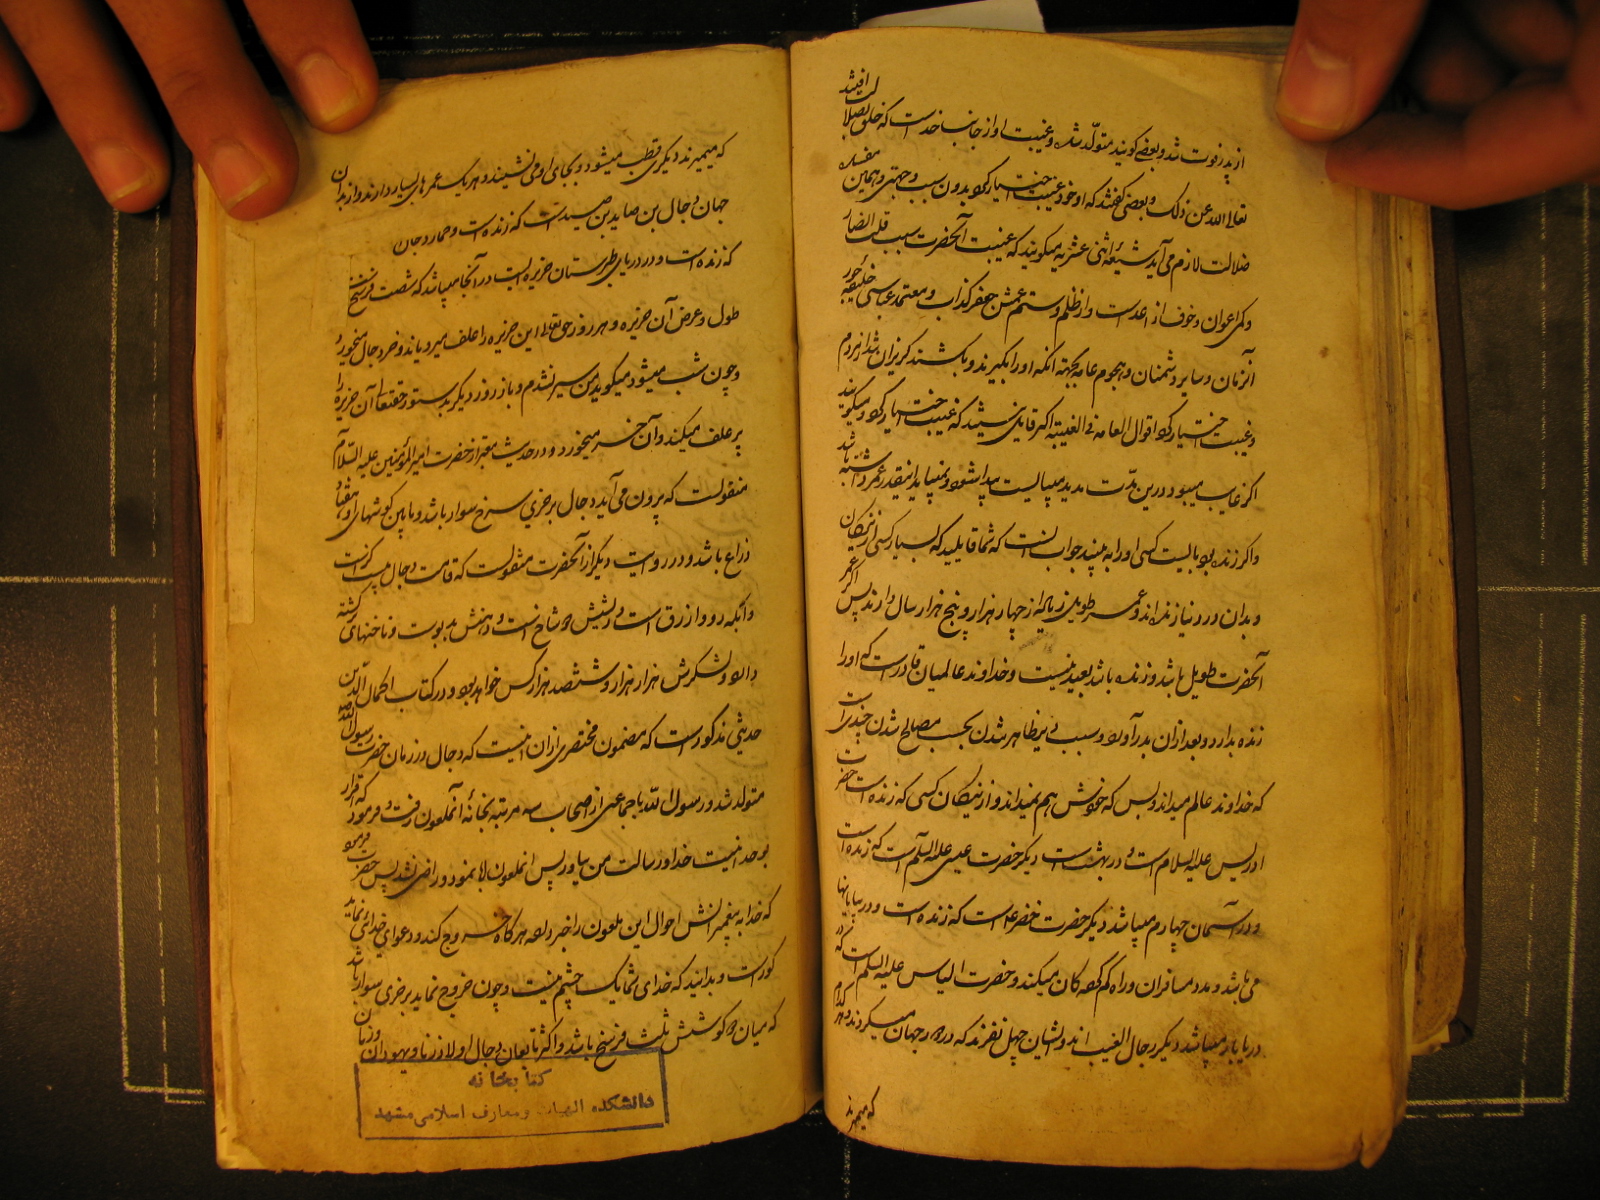 از پدر فوت شد و بعضی گویند متولد شده و غیبت او از جانب خداست که خلق بضلالت افتند
تعالی الله عن ذلک و بعضی گفتند که او خود غیبت اختیار کرده بدون سبب و جهتی و همین مفسده
ضلالت لازم می آید شیعهٔ اثنی عشریه میگویند که غیبت آنحضرت بسبب قلت انصار
و کمی اعوان و خوف از اعدست و از ظلم و ستم عمش جعفر کذاب و معتمد عباسی خلیفه جور
آنزمان و سایر دشمنان و هجوم عامه بجهة آنکه او را بگیرند و بکشند گریزان شد از مردم
و غیبت اختیار کرد اقوال العامه فی الغیبته اکثر قایل نیستند که غیبت اختیار کرده و میگویند
اگر غایب میبود درین مدت مدید میبایست پیدا شود و نمیباید اینقدر عمر داشته باشد
و اگر زنده بود بایست کسی او را به بیند جواب آنست که شما قایلید که بسیار کسی از نیکان
و بدان در دنیا زنده اند و عمر طویل زیاده از چهار هزار و پنج هزار سال دارند پس اگر عمر
آنحضرت طویل باشد و زنده باشد بعید نیست و خداوند عالمیان قادرست که او را
زنده بدارد و بعد از آن بدر آورد و سبب دیر ظاهر شدن بحسب مصالح شدن چندیست
که خداوند عالم میداند و بس که خودش هم نمیداند و از نیکان کسی که زنده است حضرت
ادریس علیه السلام است و در بهشت است دیگر حضرت عیسی علیه السلام است که زنده است
و در آسمان چهارم میباشد دیگر حضرت خضر ع است که زنده است و در بیابانها
می باشد و مدد مسافران و راه گم کرده کان میکند و حضرت الیاس علیه السلم است که در
دریا بار میباشد دیگر رجال الغیب اند و ایشان چهل نفرند که در دور جهان میگردند و هر کدام
که میمیرند
که میمیرند دیگری قطب میشود و بجای او می نشیند و هر یک عمرهای بسیار دارند و از بدان
جهان دجال بن صاید بن صیدست که زنده است و حمار دجان
که زنده است و در دریای طبرستان جزیره ایست در آنجا میباشد که شصت فرسخ
طول و عرض آن جزیره و هر روز حق تعالی این جزیره را علف میرویاند و خر دجال میخورد
و چون شب میشود میگوید من سیر نشدم و باز روز دیگر بدستور حقتعالی آن جزیره را
پر علف میکند و آن خر میخورد و در حدیث معتبر از حضرت امیر المؤمنین علیه السلام
منقولست که بیرون می آید دجال بر خری سرخ سوار باشد و مابین گوشهای او هفتاد
ذراع باشد و در روایت دیگر از آنحضرت منقولست که قامت دجال بیست گزست
و آبله رو و ازرق است و ریشش دو شاخ است و دهنش بد بوست و ناخنهای گرشته
دارد و لشکرش هزار هزار و ششصد هزار کس خواهد بود و در کتاب اکمال الدین
حدیثی مذکورست که مضمون مختصری از آن اینست که دجال در زمان حضرت رسول الله
متولد شد و رسول الله با جماعتی از اصحاب سه مرتبه بخانهٔ آنملعون رفت و فرمود که اقرار
بوحدانیت خدا و رسالت من بیاور پس انملعون لا نمود و راضی نشد پس حضرت فرمود
که خدا به پیغمبرانش احوال این ملعون را خبر داده هر گاه خروج کند و دعوای خدائی نماید
کورست و بدانید که خدای شما یک چشم نیست و چون خروج نماید بر خری سوار باشد
که میان دو گوشش ثلث فرسخ باشد و اکثر تابعان دجال اولاد زنا و یهودان و زنان
کتابخانه
دانشکده الهیات و معارف اسلامی مشهد